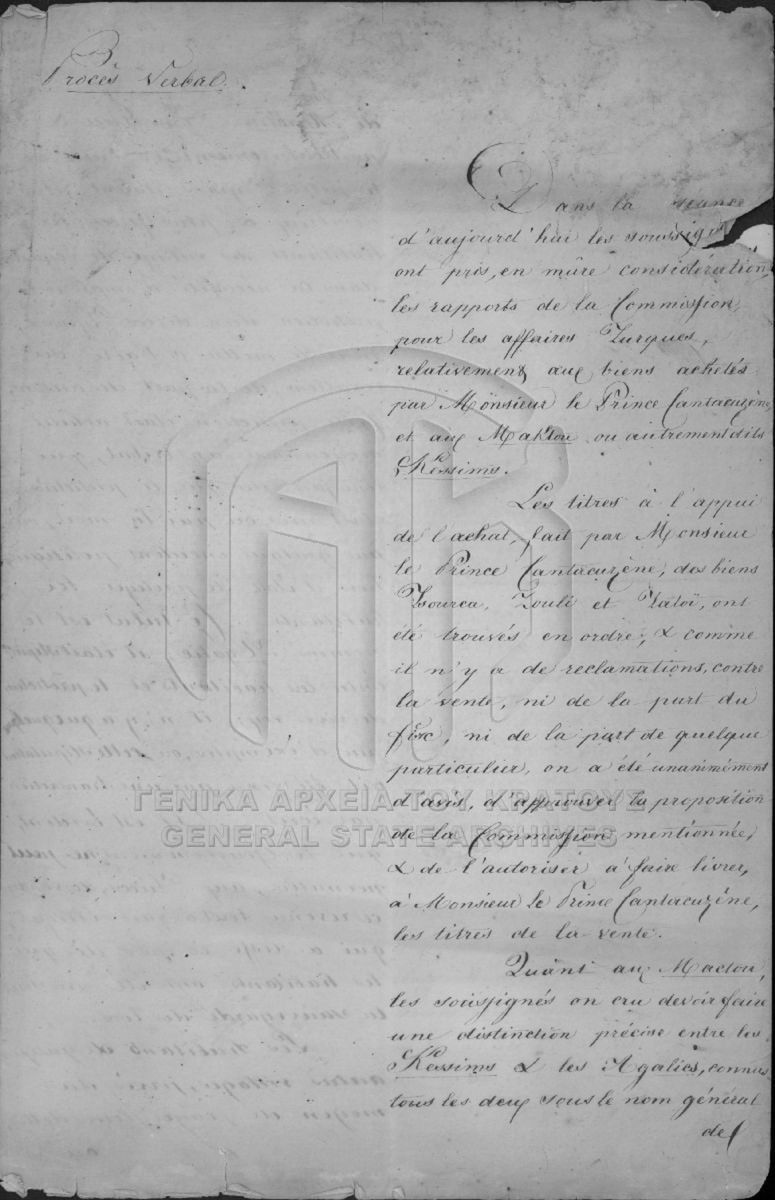 Procès Verbal.
Dans la séance
d'aujourd'hui les soussig
ont pris, en mûre considération,
les rapports de la Commission,
pour les affaires Turques,
relativement aux biens achetés
par Monsieur le Prince Cantacuzène
et aux Maktou ou autrement dits
Kessims.
Les titres à l'appui
de l'achat, fait par Monsieur
le Prince Cantacuzène, des biens
Tsourca, Zouli et Tatoï, ont
été trouvés en ordre, & comme
il n'y a de reclamations, contre
la vente, ni de la part du
fisc, ni de la part de quelque
particulier, on a été unanimément
d'avis, d'approuver la proposition
de la Commission mentionnée,
& de l'autoriser à faire livrer,
à Monsieur le Prince Cantacuzène,
les titres de la vente.
Quant aux Mactou,
les soussignés on cru devoir faire
une distinction précise entre les
Kessims & les Agalics, connus
tous les deux sous le nom général
de
ΓΕΝΙΚΑ ΑΡΧΕΙΑ ΤΟΥ ΚΡΑΤΟΥΣ
GENERAL STATE ARCHIVES